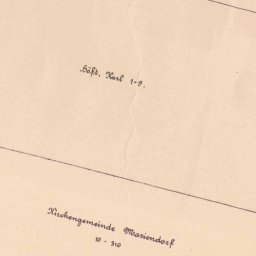 Böft, Karl 1-9.
Kirchengemeinde Mariendorf
10 - 310